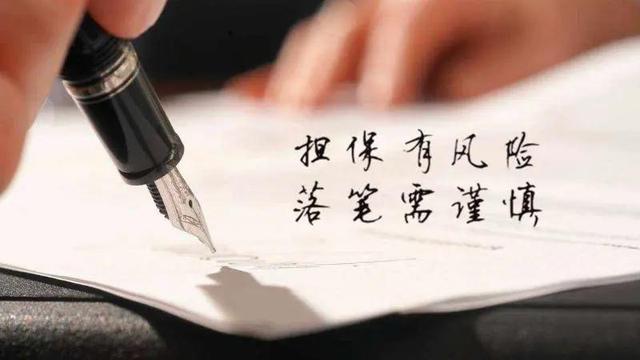 担保有风险
落笔需谨慎